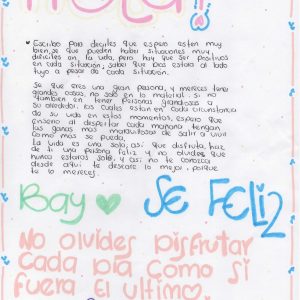 Hola!!
Escribo para decirles que espero esten muy
bien, se que pueden haber situaciones muy
dificiles en la vida, pero hay que ser positivos
en cada situación, saber que Dios estara al lado
tuyo a pesar de cada situación.
Se que eres una gran persona, y mereces tener
grandes cosas, no solo en lo material. si no
tambien en tener personas grandiosas a
su alrededor. los cuales estan en cada circunstancia
de su vida en estos momentos, espero que
enseño al despertar cada mañana tengan
las ganas mas maravillosas de salir a vivir
como mas se pueda.
La vida es una sola, asi que disfruta, haz
de ti una persona feliz y no olvides que
nunca estarás sola, y asi no te conozca
desde aqui te deseare lo mejor, porque
te lo mereces.
Bay SE FELIZ
No olvides Disfrutar
cada Dia como si
fuera El ultimo.